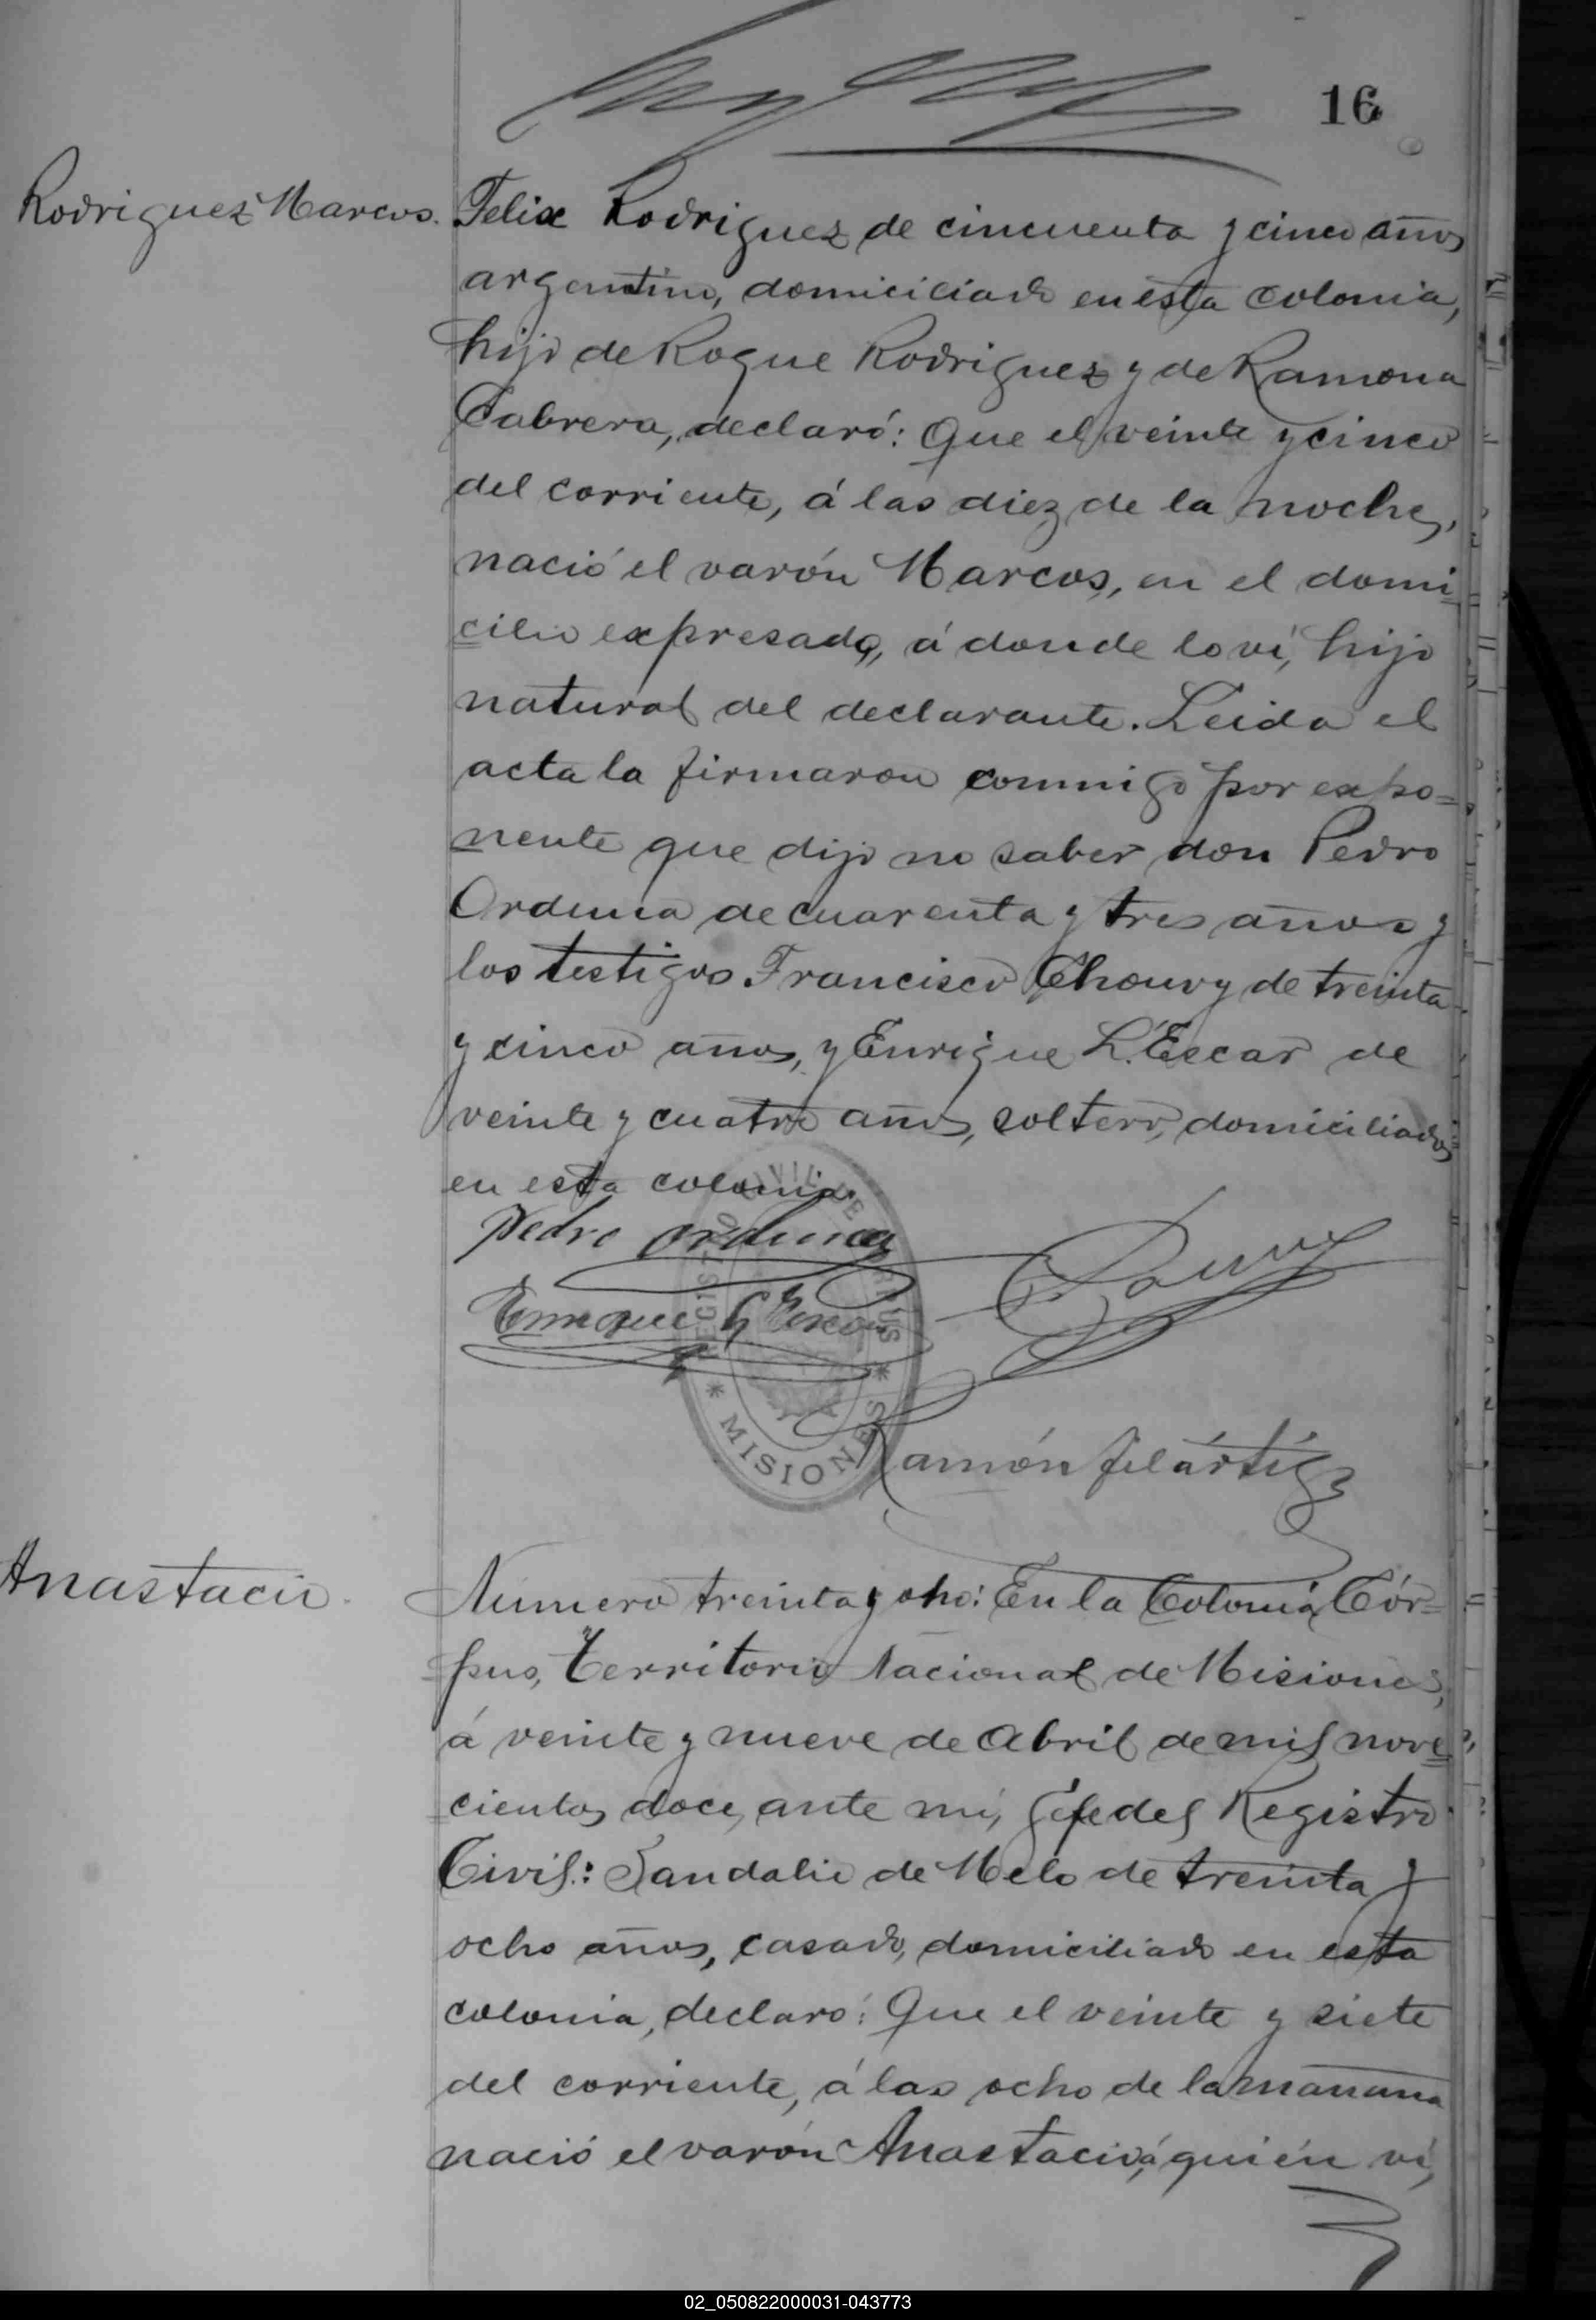 16
Rodriguez Marcos.
Felix Rodriguez de cincuenta y cinco años
argentino, domiciliado en esta colonia,
hijo de Roque Rodriguez y de Ramona
Cabrera, declaró: Que el veinte y cinco
del corriente, á las diez de la noche,
nació el varón Marcos, en el domi
cilio expresado, á donde lo ví, hijo
natural del declarante. Leida el
acta la firmaron conmigo por expo=
nente que dijo no saber don Pedro
Orduna de cuarenta y tres años y
los testigos Francisco Chouvy de treinta
y cinco años, y Enrique L'Escar de
veinte y cuatro años, soltero, domiciliados
en esta colonia.
Pedro Orduna
Enrique
REGISTRO CIVIL DE CORPUS
* MISIONES *
Ramón
Anastacio.
Número treinta y oho: En la Colonia Cór=
pus, Territorio Nacional de Misiones,
á veinte y nueve de Abril de mil nove
cientos doce, ante mí, Jefe del Registro
Civil: Sandalio de Melo de treinta y
ocho años, casado, domiciliado en esta
colonia, declaro: Que el veinte y siete
del corriente, á las ocho de la mañana
nació el varón Anastacio, á quién ví,
02_050822000031-043773